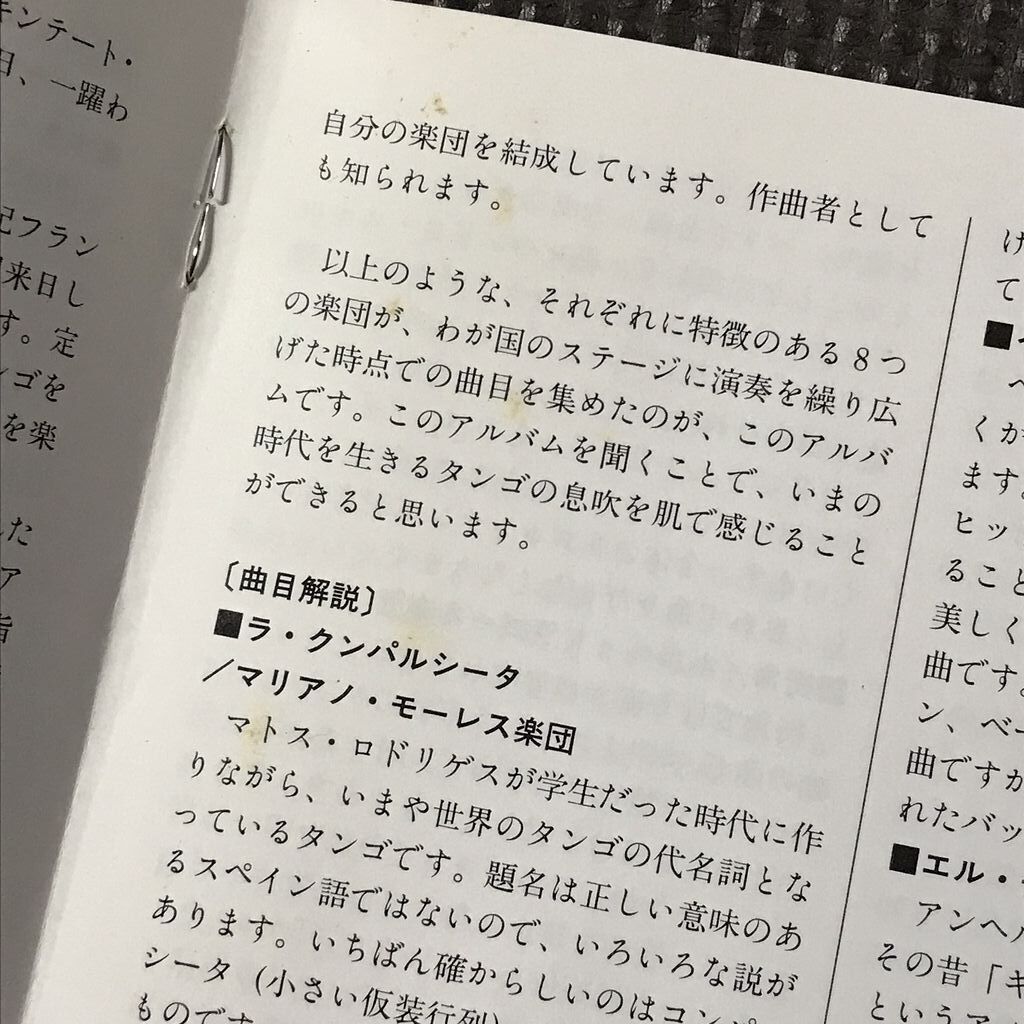 キンテート・
日、一躍わ
記フラン
来日し
す。定
ンゴを
を楽
た
ア
自分の楽団を結成しています。作曲者として
も知られます。
以上のような、それぞれに特徴のある8つ
の楽団が、わが国のステージに演奏を繰り広
げた時点での曲目を集めたのが、このアルバ
ムです。このアルバムを聞くことで、いまの
時代を生きるタンゴの息吹を肌で感じること
ができると思います。
〔曲目解説〕
■ラ・クンパルシータ
／マリアノ・モーレス楽団
マトス・ロドリゲスが学生だった時代に作
りながら、いまや世界のタンゴの代名詞とな
っているタンゴです。題名は正しい意味のあ
るスペイン語ではないので、いろいろな説が
あります。いちばん確からしいのはコンパ
シータ（小さい仮装行列）
ものです
け
て
■
くが
ます。
ヒッ
ること
美しく
曲です。
ン、ベー
曲ですが
れたバッ
■エル・
アンヘル
その昔「キ
というア